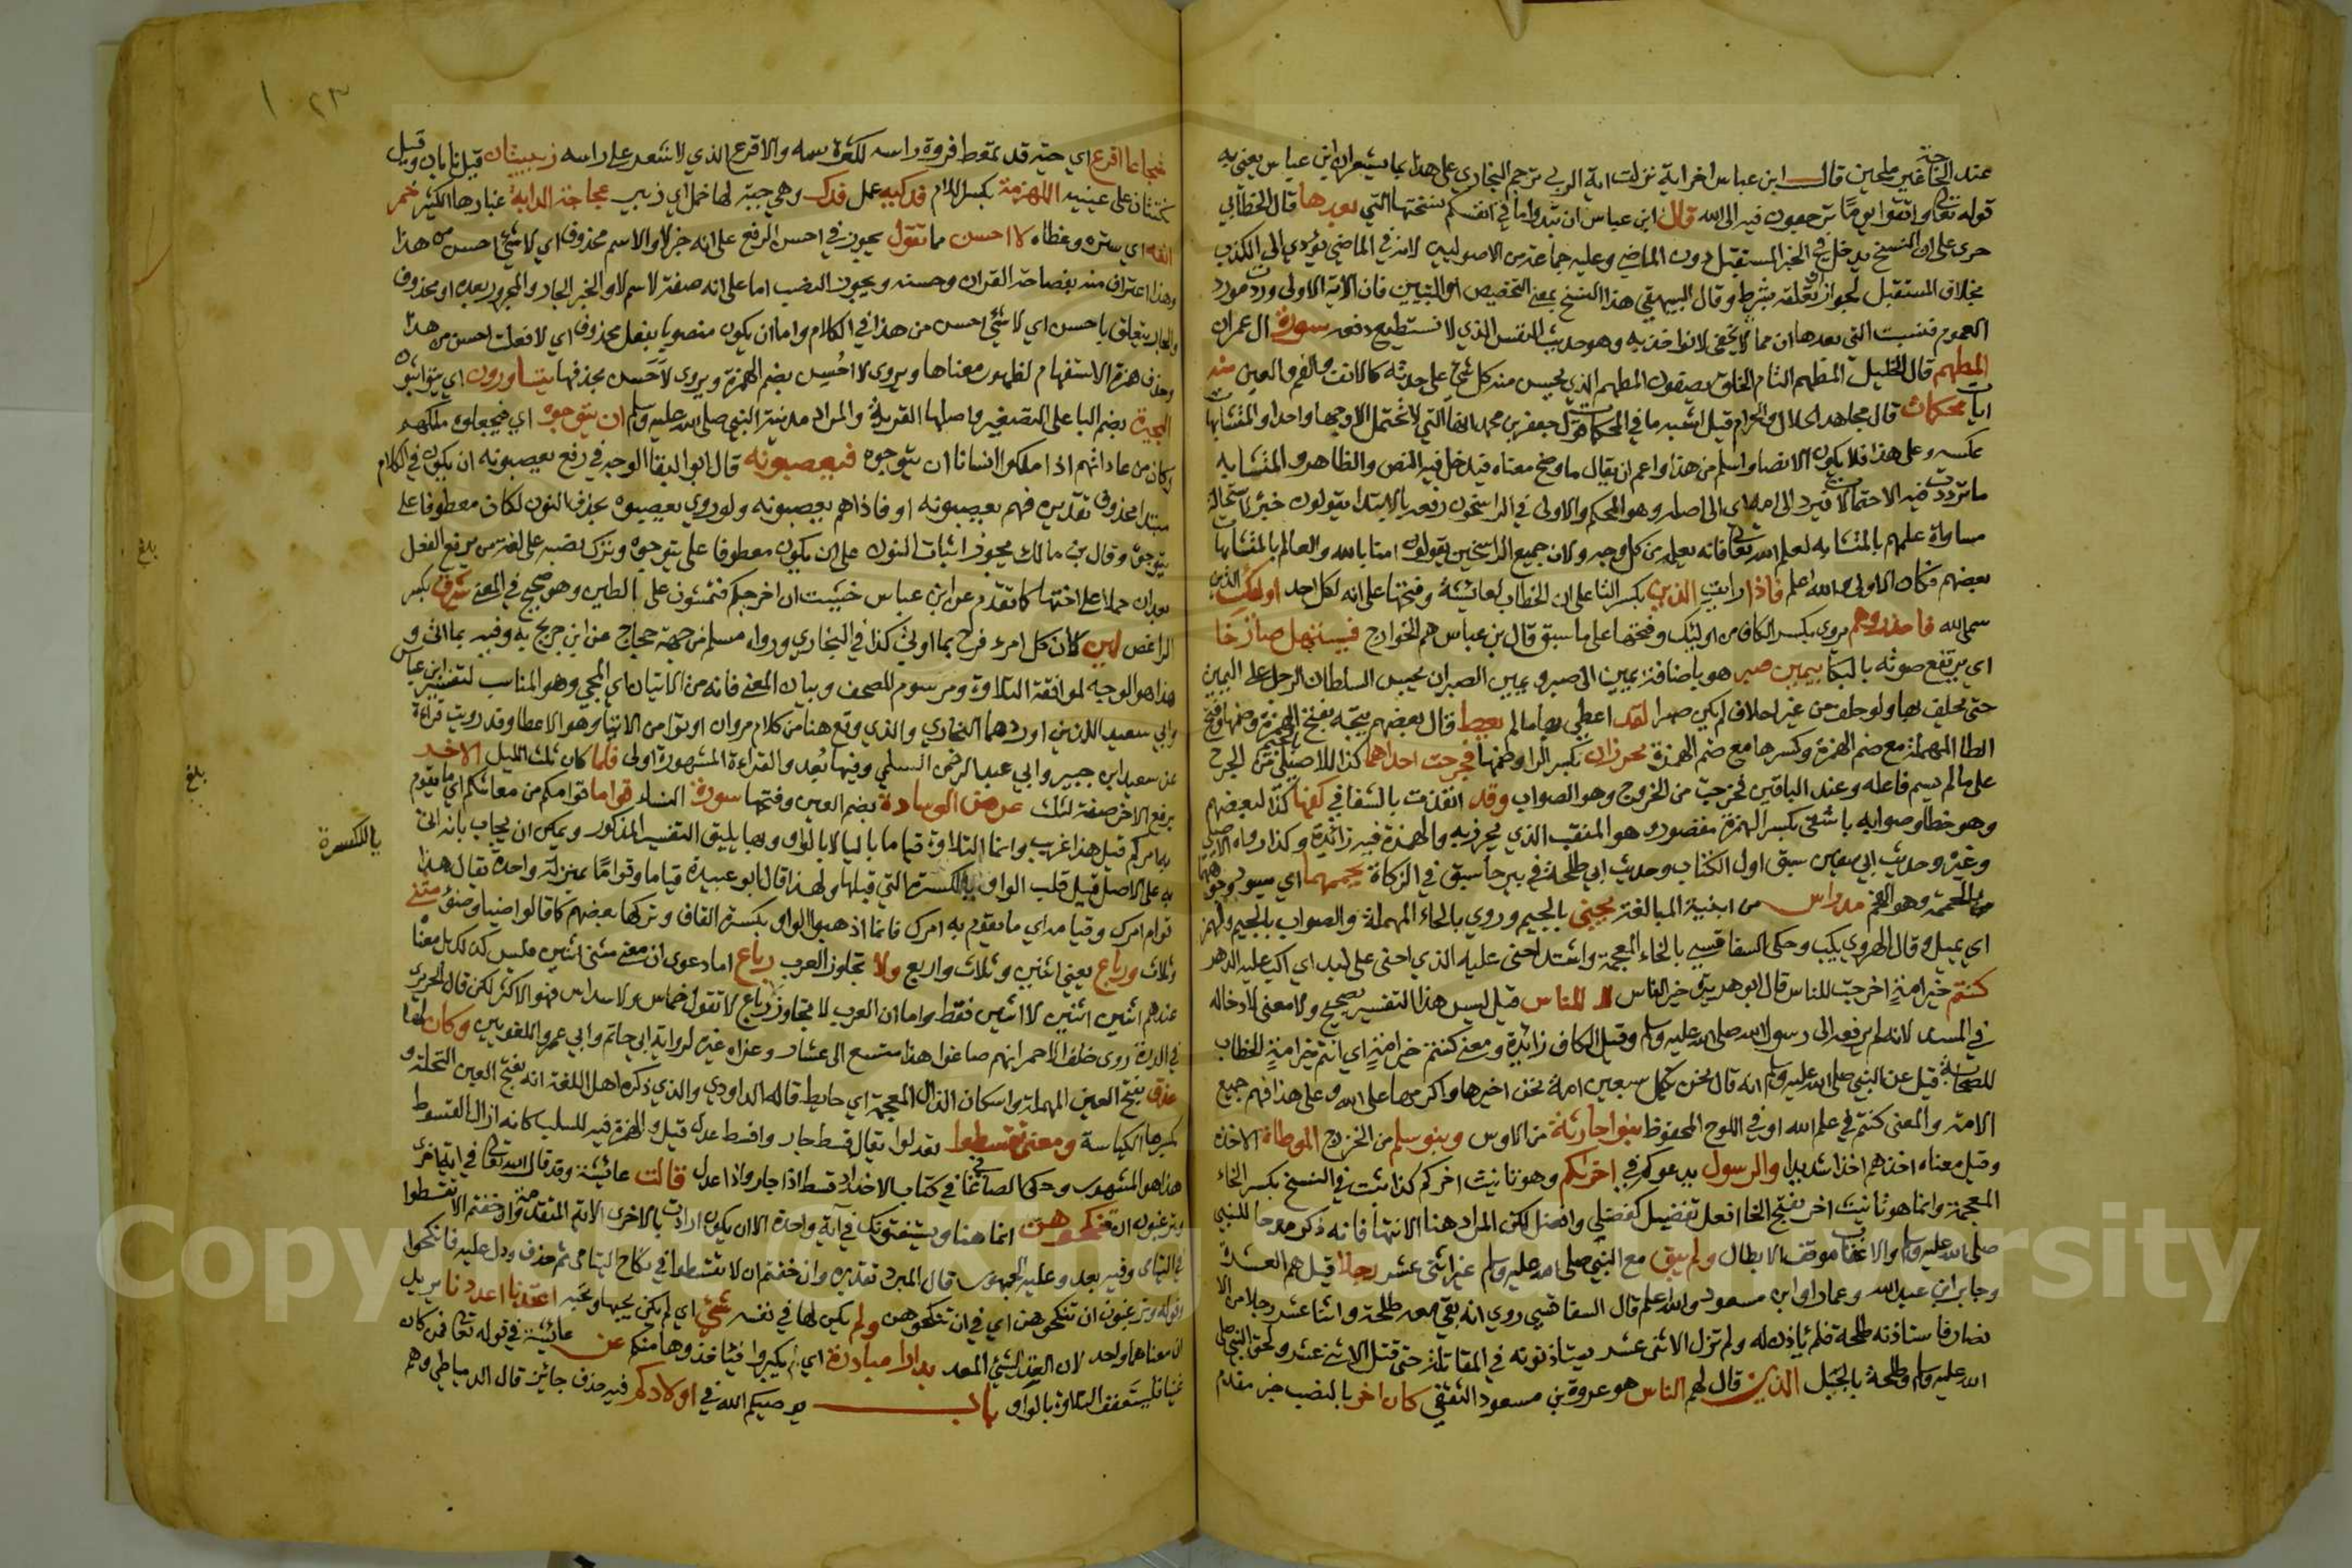 عند الحاجة غير ملحين قال ابن عباس اخر اية نزلت اية الربى ترجم البخاري على هذا بما يشعر ان ابن عباس يعني به
قوله تعالى واتقوا يوما ترجعون فيه الى الله قال ابن عباس ان تبدوا ما في انفسكم نسختها التي بعدها قال الخطابي
جرى على ان النسخ يدخل في الخبر المستقبل دون الماضي وعليه جماعة من الاصوليين لانه في الماضي يؤدي الى الكذب
بخلاف المستقبل لجواز ان تعلقه بشرط وقال البيهقي هذا النسخ بمعنى التخصيص او التبيين فان الاية الاولى وردت مورد
العموم فبينت التي بعدها ان مما لا يخفى لا نواخذ به وهو حديث النفس الذي لا نستطيع دفعه سورة ال عمران
المطهم قال الخليل المطهم التام الخلق يصفون المطهم الذي يحسن منه كل شيء على حدته كالانف والفم والعين منه
ايات محكمات قال مجاهد الحلال والحرام قيل اشبه ما في المحكمات قول جعفر بن محمد انها التي لا تحتمل الا وجها واحدا والمتشابهات
عكسه وعلى هذا فلا يكون الا نصا واسلم من هذا واعم ان يقال ما وضح معناه فيدخل فيه النص والظاهر والمتشابه
ما ترددت فيه الاحتمالات فيرد الى امه اي الى اصله وهو المحكم والاولى في الراسخون رفعه بالابتداء يقولون خبره لاستحالة
مساواة علمهم بالمتشابه لعلم الله تعالى فانه يعلمه من كل وجه ولان جميع الراسخين يقولون امنا بالله والعالم بالمتشابهات
بعضهم فكان الاولى والله اعلم فاذا رايت الذين بكسر التا على ان الخطاب لعائشة وفتحها على انه لكل احد اولئك الذين
سمى الله فاحذروهم يروى بكسر الكاف من اوليك وفتحها على ما سبق قال بن عباس هم الخوارج فيستهل صارخا
اي يرتفع صوته بالبكا بيمين صبر هو باضافة يمين الى صبر ويمين الصبر ان يحبس السلطان الرجل على اليمين
حتى يحلف بها ولو حلف من غير احلاف لم يكن صبرا لقد اعطي بها ما لم يعط قال بعضهم يتجه بفتح الهمزة وضمها وفتح
الطا المهملة مع ضم الهمزة وكسرها مع ضم الهمزة تخرزان بكسر الرا وضمها فجرحت احداهما كذا للاصيلي من الجرح
على ما لم يسم فاعله وعند الباقين فخرجت من الخروج وهو الصواب وقد انفذت بالشفا في كفها كذا لبعضهم
وهو خطا وصوابه باشفى بكسر الهمزة مقصور وهو المثقب الذي يخرز به والهمزة فيه زائدة وكذا رواه الاصيلي
وغيره وحديث ابي سفين سبق اول الكتاب وحديث ابي طلحة في بيرحا سبق في الزكاة يحممهما اي يسود وجوههما
بالحممة وهو الفحم مدراس من ابنية المبالغة يجنى بالجيم وروي بالحاء المهملة والصواب بالجيم والهمز
اي يميل وقال الهروي يكب وحكى السفاقسي بالخاء المعجمة وانشد اخنى عليه الذي اخنى على لبد اي اكب عليه الدهر
كنتم خير امة اخرجت للناس قال ابو هريرة خير الناس للناس قيل ليس هذا التفسير بصحيح ولا معنى لادخاله
في المسند لانه لم يرفعه الى رسول الله صلى الله عليه وسلم وقيل الكاف زائدة ومعنى كنتم خير امة اي انتم خير امة الخطاب
للصحابة قيل عن النبي صلى الله عليه وسلم انه قال نحن نكمل سبعين امة نحن اخيرها واكرمها على الله وعلى هذا فهم جميع
الامة والمعنى كنتم في علم الله او في اللوح المحفوظ بنوا حارثة من الاوس وبنو سلم من الخزرج الموطاة الاخذة
وقيل معناه اخذهم اخذا شديدا والرسول يدعوكم في اخراكم وهو تانيث اخركم كذا ثبت في النسخ بكسر الخاء
المعجمة وانما هو تانيث اخر بفتح الخا افعل تفضيل كفضلى وافضل لكن المراد هنا الانتها فانه ذكر مدحا للنبي
صلى الله عليه وسلم والاعقاب موقف الابطال ولم يبق مع النبي صلى الله عليه وسلم غير اثنى عشر رجلا قيل هم العشرة
وجابر ابن عبد الله وعمار او ابن مسعود والله اعلم قال السفاقسي روي انه بقي معه طلحة واثنا عشر رجلا من الا
نصار فاستاذنه طلحة فلم ياذن له ولم تزل الاثنى عشر يستاذنونه في المقاتلة حتى قتل الاثنى عشر ولحق النبي صلى
الله عليه وسلم وطلحة بالجبل الذين قال لهم الناس هو عروة بن مسعود الثقفي كان اخر بالنصب خبر مقدم
٢٣ ١
شجاعا اقرع اي حية قد تمعط فروة راسه لكثرة سمه والاقرع الذي لا شعر على راسه زبيبتان قيل نابان وقيل
نكتتان على عينيه اللهزمة بكسر اللام فدكية عمل فدك وهي جبة لها خمل اي زبير عجاجة الدابة غبارها الكثير خمر
انفه اي ستره وغطاه لا احسن مما تقول يجوز في احسن الرفع على انه خبر لا والاسم محذوف اي لا شيء احسن من هذا
وهذا اعتراف منه بفصاحة القران وحسنه ويجوز النصب اما على انه صفة لاسم لا والخبر الجار والمجرور بعده او محذوف
والجار يتعلق باحسن اي لا شيء احسن من هذا في الكلام واما ان يكون منصوبا بفعل محذوف اي لا فعلت احسن من هذا
وحذف همزة الاستفهام لظهور معناها ويروى لا احسن بضم الهمزة ويروى لاحسن بحذفها يتثاورون اي يتواثبون
البحيرة بضم البا على التصغير واصلها القرية والمراد مدينة النبي صلى الله عليه وسلم ان يتوجوه اي فيجعلوه ملكهم
وكان من عاداتهم اذا ملكوا انسانا ان يتوجوه فيعصبونه قال ابو البقا الوجه في رفع يعصبونه ان يكون في الكلام
مبتدا محذوف تقديره فهم يعصبونه او فاذا هم يعصبونه ولو روي يعصبوه بحذف النون لكان معطوفا على
يتوجوه وقال بن مالك يجوز اثبات النون على ان يكون معطوفا على يتوجوه وترك نصبه على لغة من يرفع الفعل
بعد ان حملا على اختها كما تقدم عن ابن عباس خشيت ان اخرجكم فتمشون على الطين وهو صحيح في المعنى شرق بكسر
الرا غص لين كان كل امرء فرح بما اوتي كذا في البخاري ورواه مسلم من جهة حجاج عن ابن جريج به وفيه بما اتى و
هذا هو الوجه لموافقة التلاوة ومرسوم المصحف وبيان المعنى فانه من الاتيان اي المجي وهو المناسب لتفسير ابن عباس
وابي سعيد اللذين اوردهما البخاري والذي وقع هنا من كلام مروان اوتوا من الايتاء وهو الاعطا وقد رويت قراءة
عن سعيد ابن جبير وابي عبد الرحمن السلمي وفيها بعد والقراءة المشهورة اولى فلما كان ثلث الليل الاخر
برفع الاخر صفة لثلث عرض الوسادة بضم العين وفتحها سورة النساء قواما قوامكم من معائشكم اي ما يقوم
به امركم قيل هذا غريب وانما التلاوة قياما باليا لا بالواو وبها يليق التفسير المذكور ويمكن ان يجاب بانه اتى
به على الاصل قبل قلب الواو يا للكسرة التي قبلها ولهذا قال ابو عبيدة قياما وقواما بمنزلة واحدة تقال هذا
قوام امرك وقيامه اي ما يقوم به امرك فانما اذهبوا الواو بكسرة القاف وتركها بعضهم كما قالوا ضيا وضوا مثنى
وثلاث ورباع يعني اثنين وثلاث واربع ولا تجاوز العرب رباع اما دعوى ان معنى مثنى اثنين فليس كذلك بل معناه
عندهم اثنين اثنين لا اثنين فقط واما ان العرب لا تجاوز رباع لا تقول خماس ولا سداس فهو الاكثر لكن قال الحريري
في الدرة روى خلف الاحمر انهم صاغوا هذا متسع الى عشار وعزاه غيره لرواية ابي حاتم وابي عمرو اللغويين وكان لها
عذق بفتح العين المهملة واسكان الذال المعجمة اي حايط قاله الداودي والذي ذكره اهل اللغة انه بفتح العين النخلة و
كسرها الكباسة ومعنى تقسطوا تعدلوا يقال قسط جار واقسط عدل قيل والهمزة فيه للسلب كانه ازال القسوط
هذا هو المشهور وحكى الصاغاني في كتاب الاضداد قسط اذا جار واذا عدل قالت عائشة وقد قال الله تعالى في اية اخرى
وترغبون ان تنكحوهن انما هنا ويستفتونك في اية واحدة الا ان يكون ارادت بالاخرى الاية المتقدمة وان خفتم الا تقسطوا
في اليتامى وفيه بعد وعليه الجمهور قال المبرد تقديره وان خفتم ان لا تقسطوا في نكاح اليتامى ثم حذف ودل عليه فانكحوا
وقوله وترغبون ان تنكحوهن اي في ان تنكحوهن ولم يكن لها في نفسه شيء اي لم يكن يحبها وتحبه اعتدنا اعددنا يريد
ان معناهما واحد لان العتيد الشيء المعد بدارا مبادرة اي ان يكبروا فياخذوها منكم عن عائشة في قوله تعالى فمن كان
غنيا فليستعفف التلاوة بالواو باب يوصيكم الله في اولادكم فيه حذف جائز قال الدمياطي وهم
بلغ
بلغ
يا للكسرة
Copy
rsity